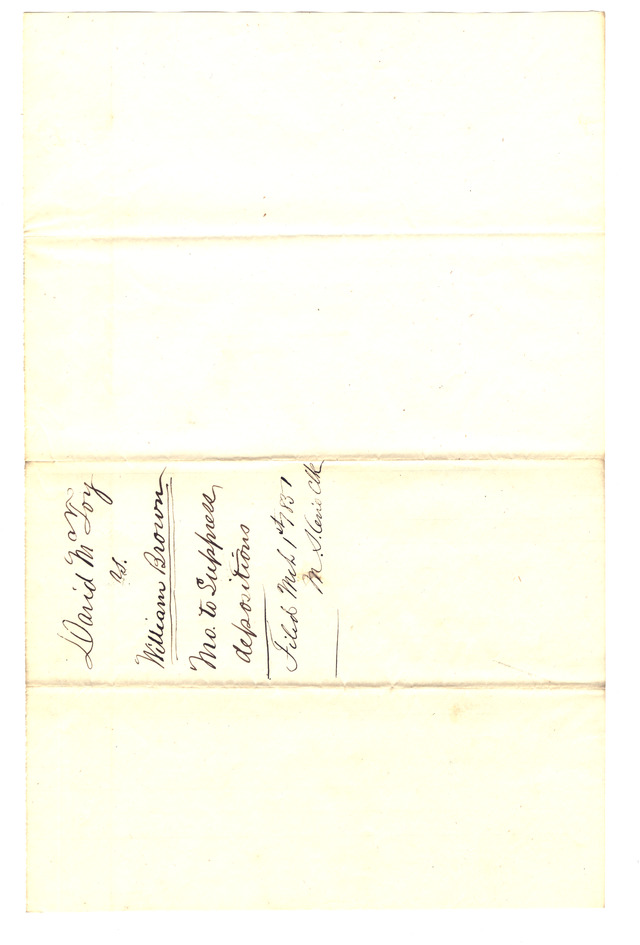 David McVoy
vs.
William Brown
Mo. to Suppress
depositions
Filed Mch 1st 1851
M. Clk